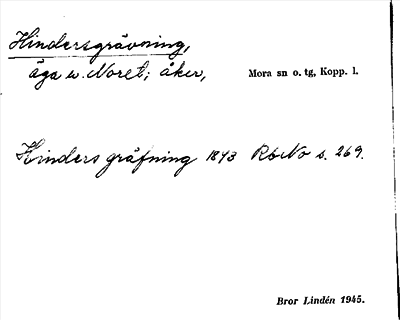 Hindersgrävning,
äga u. Noret; åker, Mora sn o. tg, Kopp. l.
Hinders gräfning 1843 RbNo s. 269.
Bror Lindén 1945.